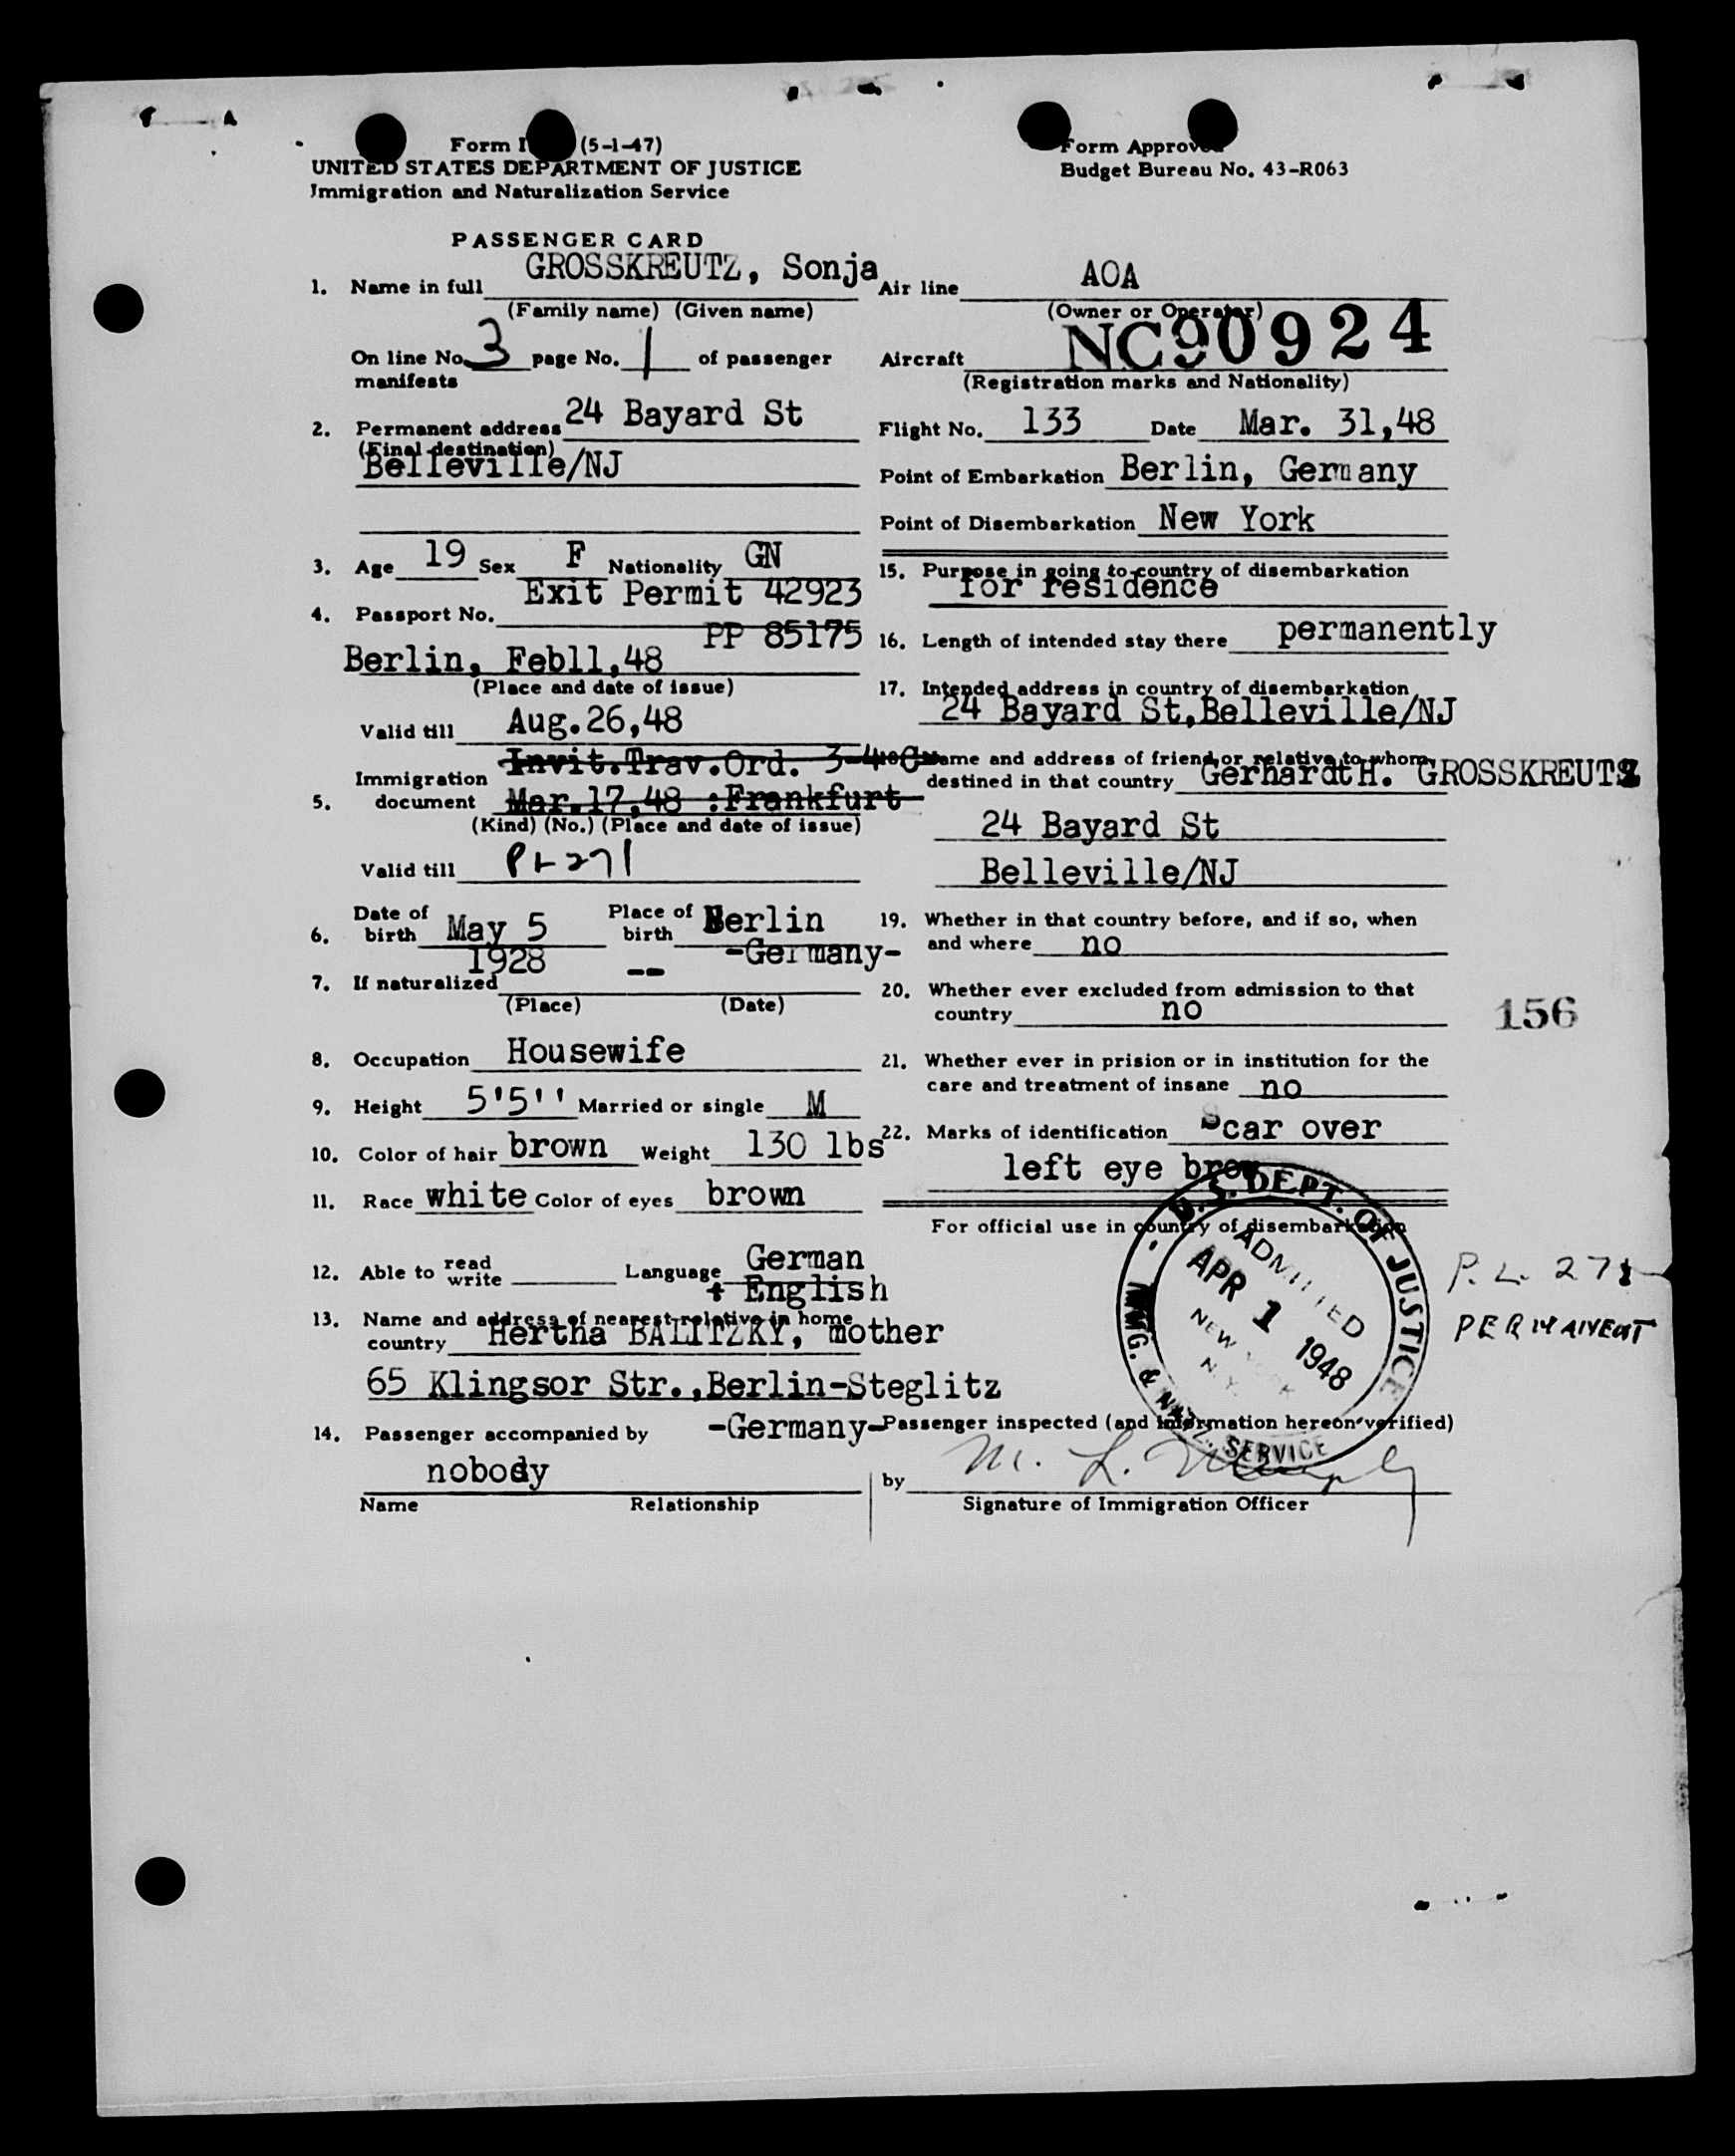 Form I (5-1-47)
UNITED STATES DEPARTMENT OF JUSTICE
Immigration and Naturalization Service
Form Approved
Budget Bureau No. 43-R063
PASSENGER CARD
1. Name in full GROSSKREUTZ, Sonja
(Family name) (Given name)
On line No. 3 page No. 1 of passenger
manifests
2. Permanent address 24 Bayard St
(Final destination)
Belleville/NJ
3. Age 19 Sex F Nationality GN
Exit Permit 42923
4. Passport No.
PP 85175
Berlin, Feb11,48
(Place and date of issue)
Valid till Aug.26,48
Invit.Trav.Ord.
Immigration
5. document Mar.17,48 :Frankfurt
(Kind) (No.) (Place and date of issue)
Valid till PL 271
6. Date of birth May 5 Place of birth Berlin
1928 -Germany-
7. If naturalized --
(Place) (Date)
8. Occupation Housewife
9. Height 5'5'' Married or single M
10. Color of hair brown Weight 130 lbs
11. Race white Color of eyes brown
12. Able to read write Language German
+ English
13. Name and address of nearest relative in home
country Hertha BALITZKY, mother
65 Klingsor Str.,Berlin-Steglitz
-Germany-
14. Passenger accompanied by
nobody
Name Relationship
Air line AOA
(Owner or Operator)
Aircraft NC90924
(Registration marks and Nationality)
Flight No. 133 Date Mar. 31,48
Point of Embarkation Berlin, Germany
Point of Disembarkation New York
15. Purpose in going to country of disembarkation
for residence
16. Length of intended stay there permanently
17. Intended address in country of disembarkation
24 Bayard St,Belleville/NJ
Name and address of friend or relative to whom
destined in that country Gerhardt H. GROSSKREUTZ
24 Bayard St
Belleville/NJ
19. Whether in that country before, and if so, when
and where no
20. Whether ever excluded from admission to that
country no
156
21. Whether ever in prision or in institution for the
care and treatment of insane no
22. Marks of identification Scar over
left eye brow
For official use in country of disembarkation
U.S. DEPT. OF JUSTICE
IMMG. & NATZ. SERVICE
ADMITTED
APR 1 1948
NEW YORK
N.Y.
P.L. 271
PERMANENT
Passenger inspected (and information hereon verified)
by M. L.
Signature of Immigration Officer